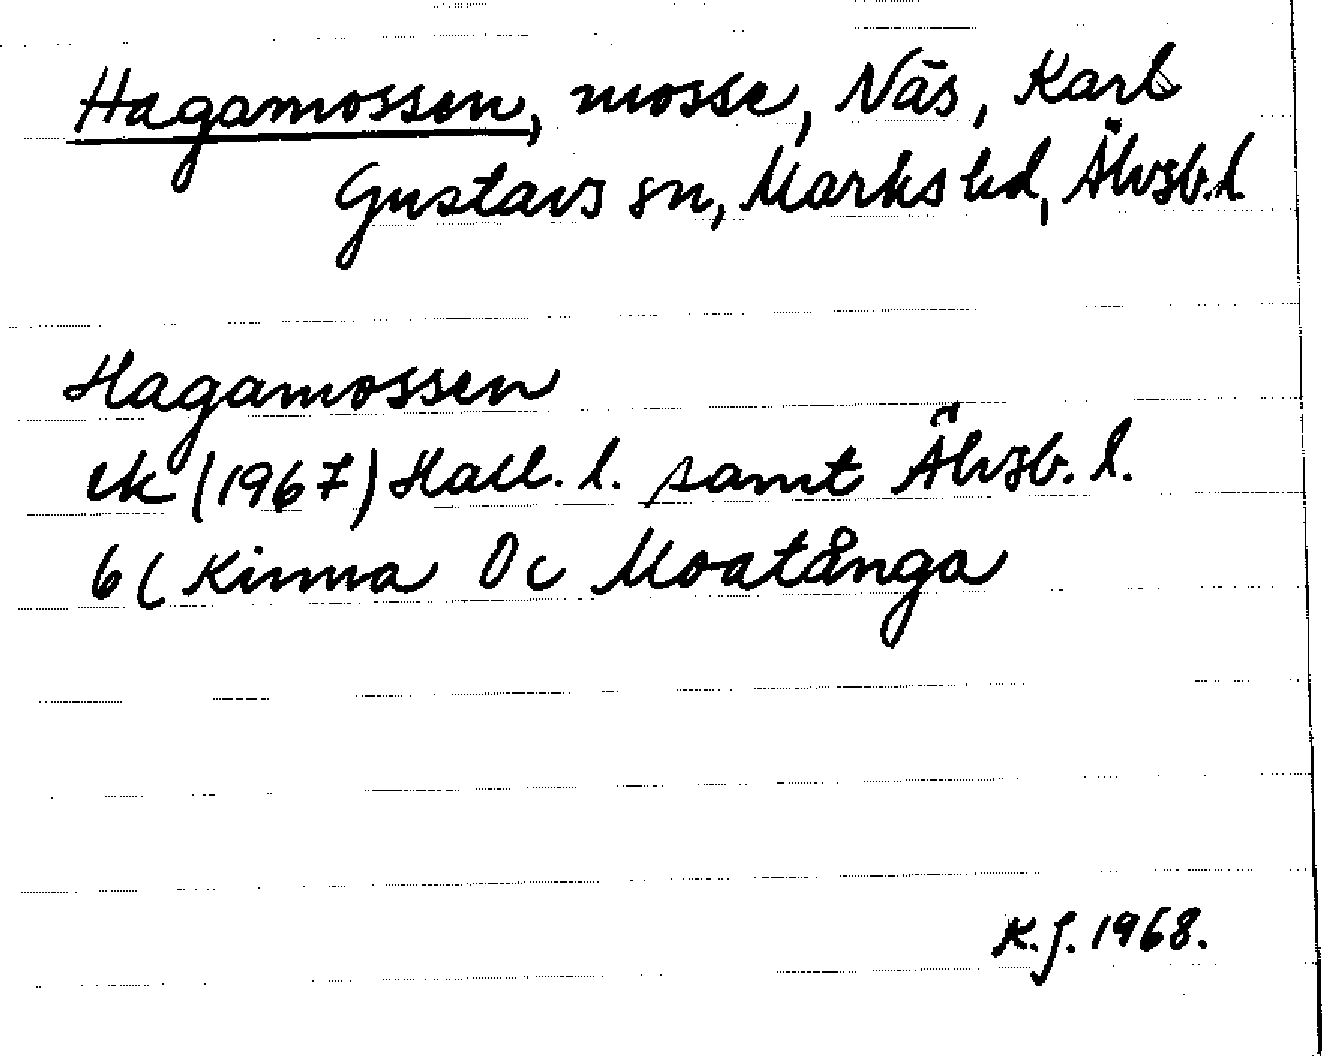 Hagamossen, mosse, Näs, Karl
Gustavs sn, Marks hd, Älvsb. l.
Hagamossen
ek (1967) Hall. l. samt Älvsb. l.
6C Kinna 0c Moatånga
K.J. 1968.